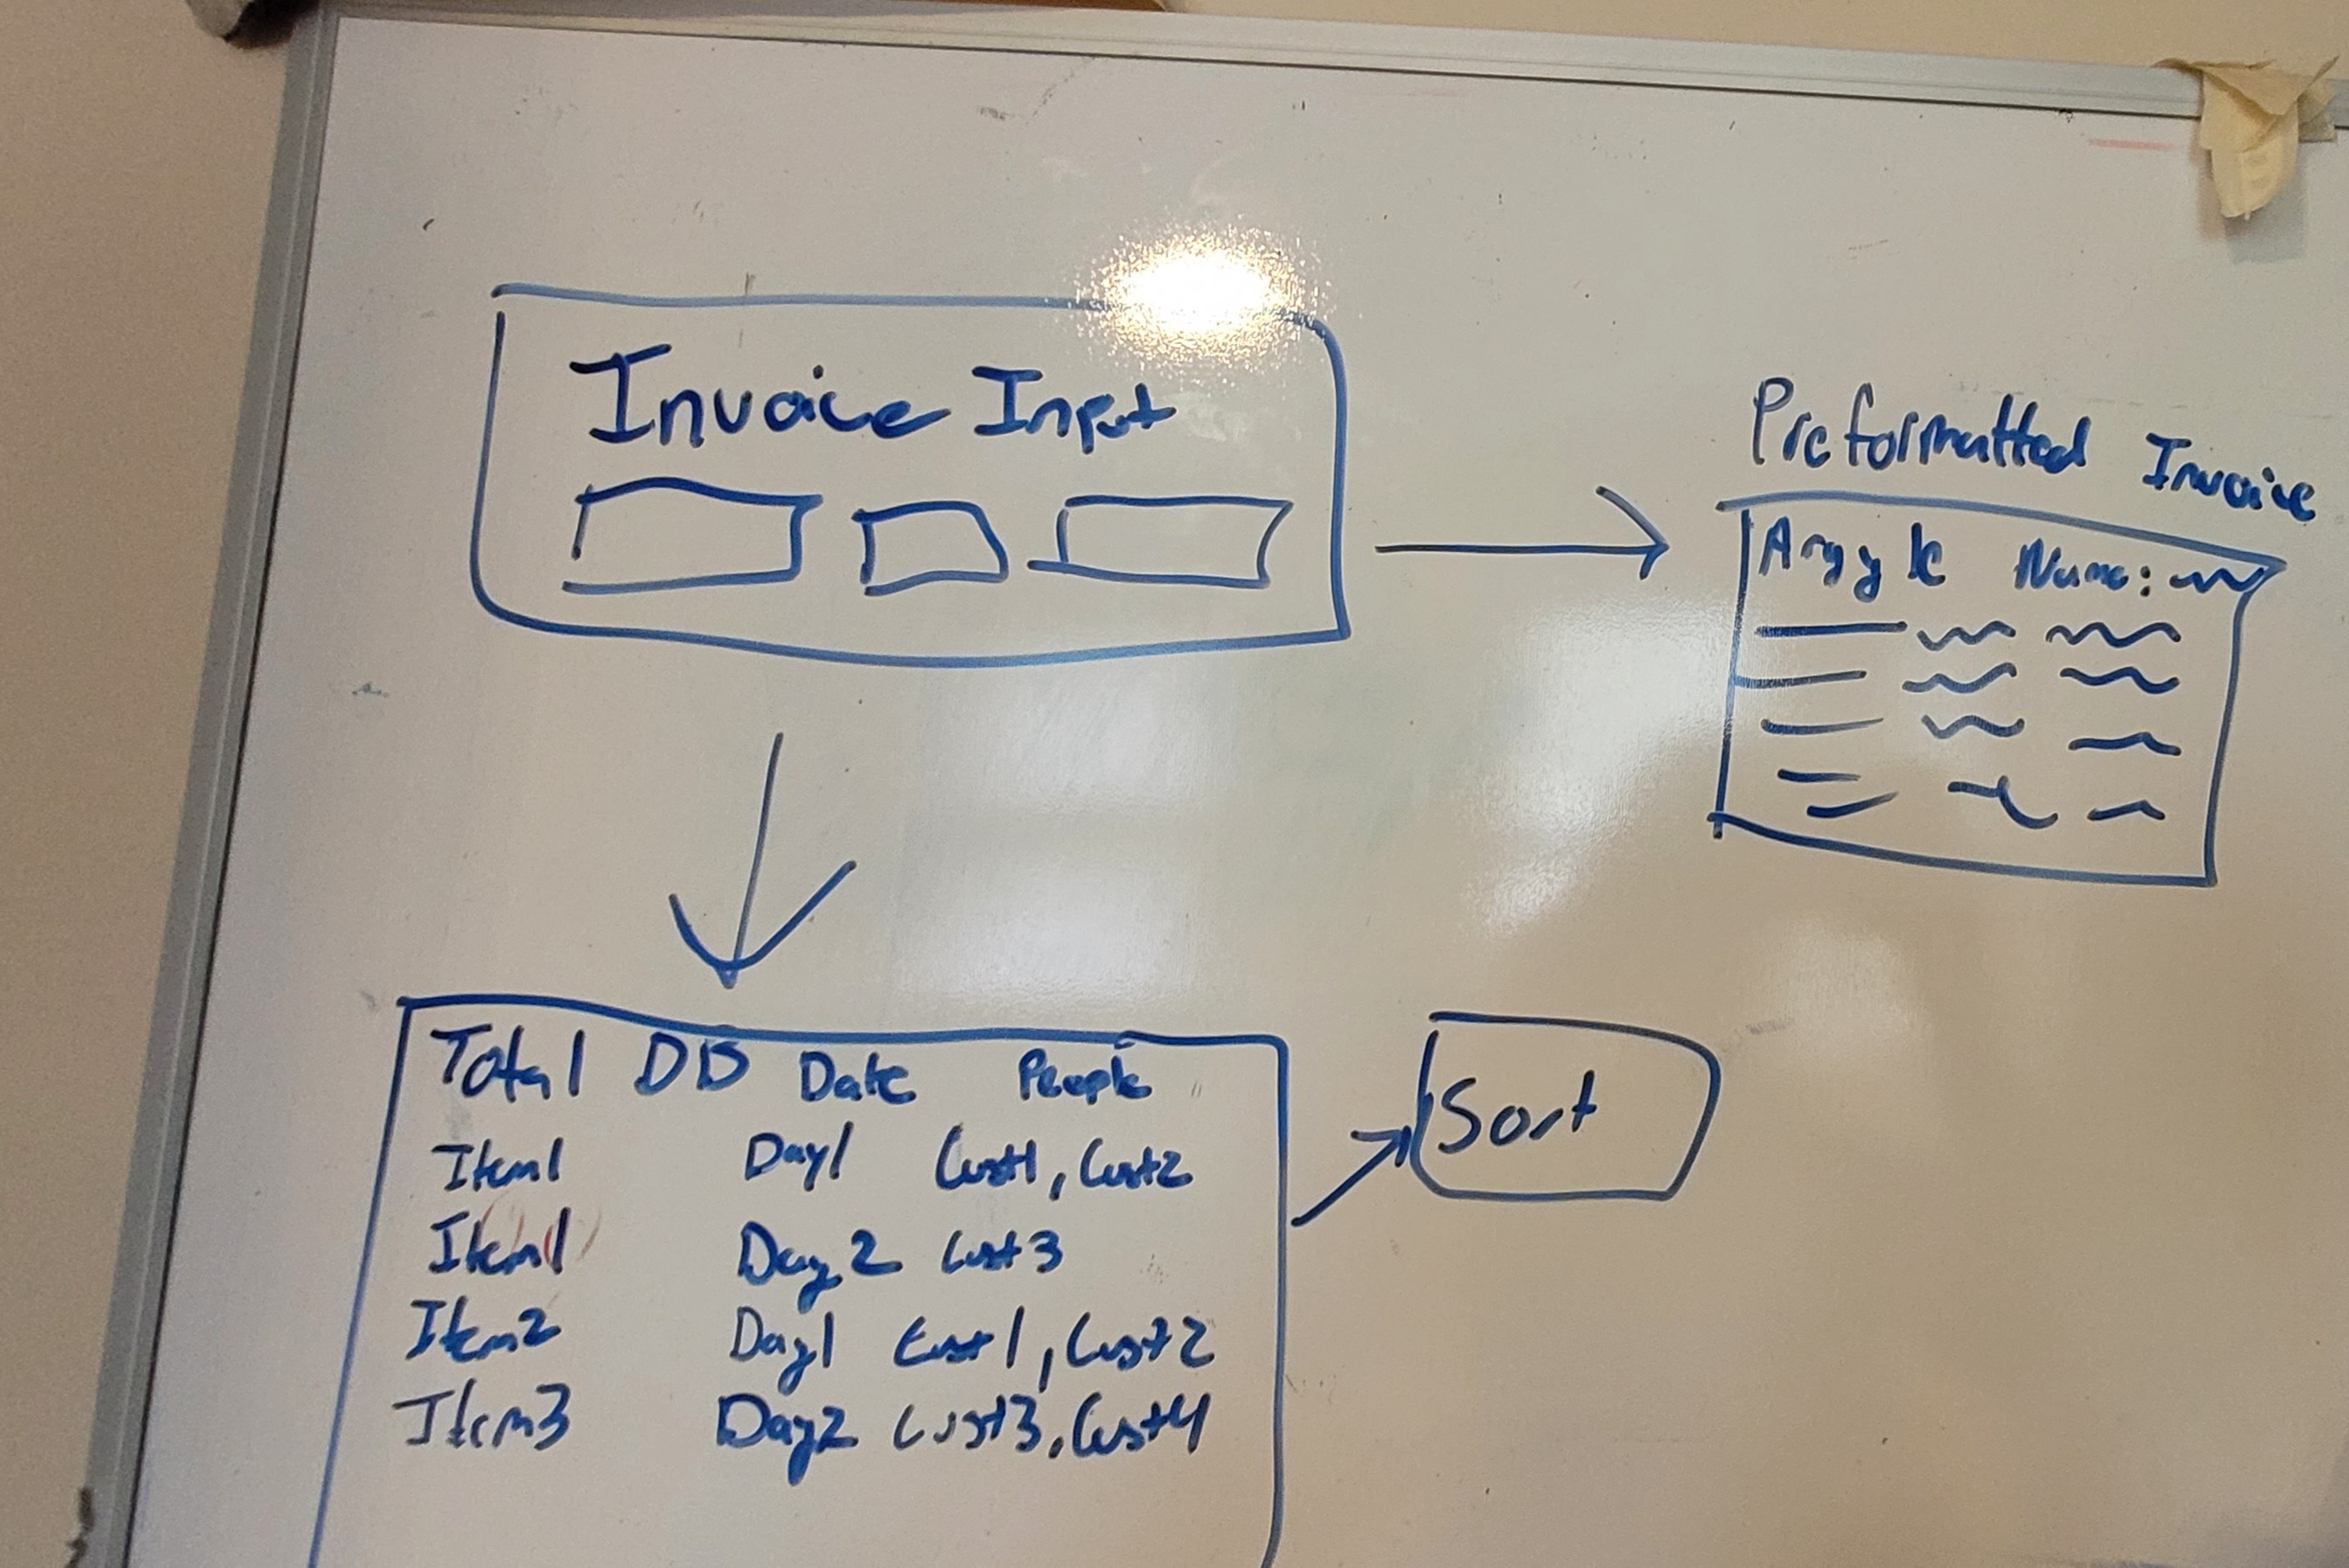 Invoice Input
Preformatted Invoice
Argyle Name:
Total DB Date People
Item1 Day1 Cust1, Cust2
Item1 Day2 Cust3
Item2 Day1 Cust1, Cust2
Item3 Day2 Cust3, Cust4
Sort